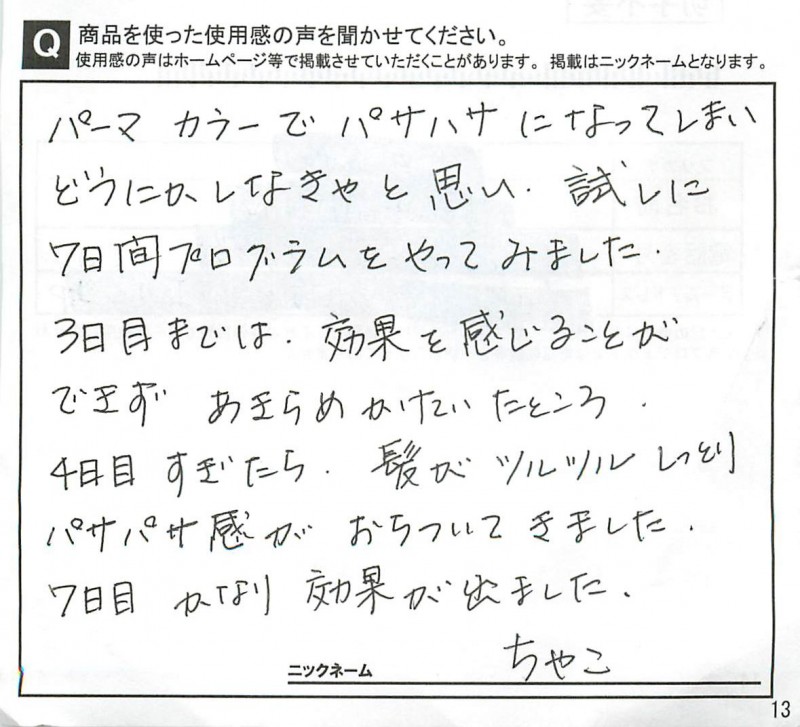 Q 商品を使った使用感の声を聞かせてください。
使用感の声はホームページ等で掲載させていただくことがあります。掲載はニックネームとなります。
パーマ カラーで パサハサ になってしまい
どうにかしなきゃと思い、試しに
7日間プログラムをやってみました。
3日目までは、効果を感じることが
できず あきらめかけていたところ、
4日目 すぎたら、髪が ツルツル しっとり
パサパサ感が おちついてきました。
7日目 かなり 効果が出ました。
ニックネーム ちゃこ
13